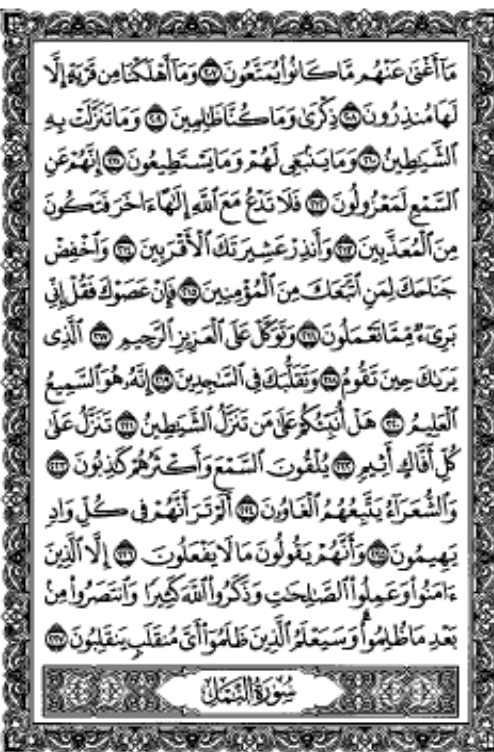 مَآ أَغْنَىٰ عَنْهُم مَّا كَانُوا۟ يُمَتَّعُونَ ﴿٢٠٧﴾ وَمَآ أَهْلَكْنَا مِن قَرْيَةٍ إِلَّا
لَهَا مُنذِرُونَ ﴿٢٠٨﴾ ذِكْرَىٰ وَمَا كُنَّا ظَٰلِمِينَ ﴿٢٠٩﴾ وَمَا تَنَزَّلَتْ بِهِ
ٱلشَّيَٰطِينُ ﴿٢١٠﴾ وَمَا يَنۢبَغِى لَهُمْ وَمَا يَسْتَطِيعُونَ ﴿٢١١﴾ إِنَّهُمْ عَنِ
ٱلسَّمْعِ لَمَعْزُولُونَ ﴿٢١٢﴾ فَلَا تَدْعُ مَعَ ٱللَّهِ إِلَٰهًا ءَاخَرَ فَتَكُونَ
مِنَ ٱلْمُعَذَّبِينَ ﴿٢١٣﴾ وَأَنذِرْ عَشِيرَتَكَ ٱلْأَقْرَبِينَ ﴿٢١٤﴾ وَٱخْفِضْ
جَنَاحَكَ لِمَنِ ٱتَّبَعَكَ مِنَ ٱلْمُؤْمِنِينَ ﴿٢١٥﴾ فَإِنْ عَصَوْكَ فَقُلْ إِنِّى
بَرِىٓءٌ مِّمَّا تَعْمَلُونَ ﴿٢١٦﴾ وَتَوَكَّلْ عَلَى ٱلْعَزِيزِ ٱلرَّحِيمِ ﴿٢١٧﴾ ٱلَّذِى
يَرَىٰكَ حِينَ تَقُومُ ﴿٢١٨﴾ وَتَقَلُّبَكَ فِى ٱلسَّٰجِدِينَ ﴿٢١٩﴾ إِنَّهُۥ هُوَ ٱلسَّمِيعُ
ٱلْعَلِيمُ ﴿٢٢٠﴾ هَلْ أُنَبِّئُكُمْ عَلَىٰ مَن تَنَزَّلُ ٱلشَّيَٰطِينُ ﴿٢٢١﴾ تَنَزَّلُ عَلَىٰ
كُلِّ أَفَّاكٍ أَثِيمٍ ﴿٢٢٢﴾ يُلْقُونَ ٱلسَّمْعَ وَأَكْثَرُهُمْ كَٰذِبُونَ ﴿٢٢٣﴾
وَٱلشُّعَرَآءُ يَتَّبِعُهُمُ ٱلْغَاوُۥنَ ﴿٢٢٤﴾ أَلَمْ تَرَ أَنَّهُمْ فِى كُلِّ وَادٍ
يَهِيمُونَ ﴿٢٢٥﴾ وَأَنَّهُمْ يَقُولُونَ مَا لَا يَفْعَلُونَ ﴿٢٢٦﴾ إِلَّا ٱلَّذِينَ
ءَامَنُوا۟ وَعَمِلُوا۟ ٱلصَّٰلِحَٰتِ وَذَكَرُوا۟ ٱللَّهَ كَثِيرًا وَٱنتَصَرُوا۟ مِنۢ
بَعْدِ مَا ظُلِمُوا۟ وَسَيَعْلَمُ ٱلَّذِينَ ظَلَمُوٓا۟ أَىَّ مُنقَلَبٍ يَنقَلِبُونَ ﴿٢٢٧﴾
سُورَةُ ٱلنَّمْلِ